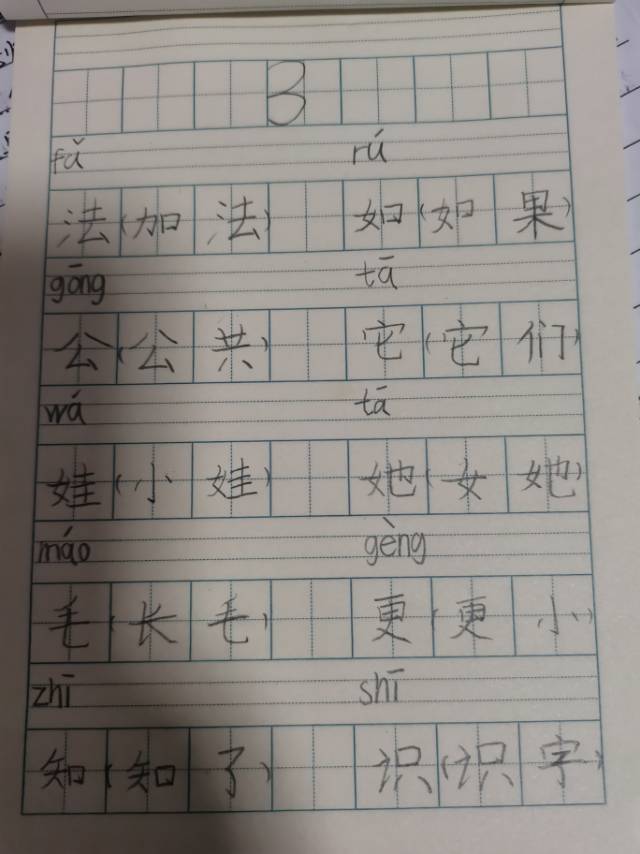 3
fǎ rú
法（加法） 如（如果）
gōng tā
公（公共） 它（它们）
wá tā
娃（小娃） 她（女她）
máo gèng
毛（长毛） 更（更小）
zhī shī
知（知了） 识（识字）